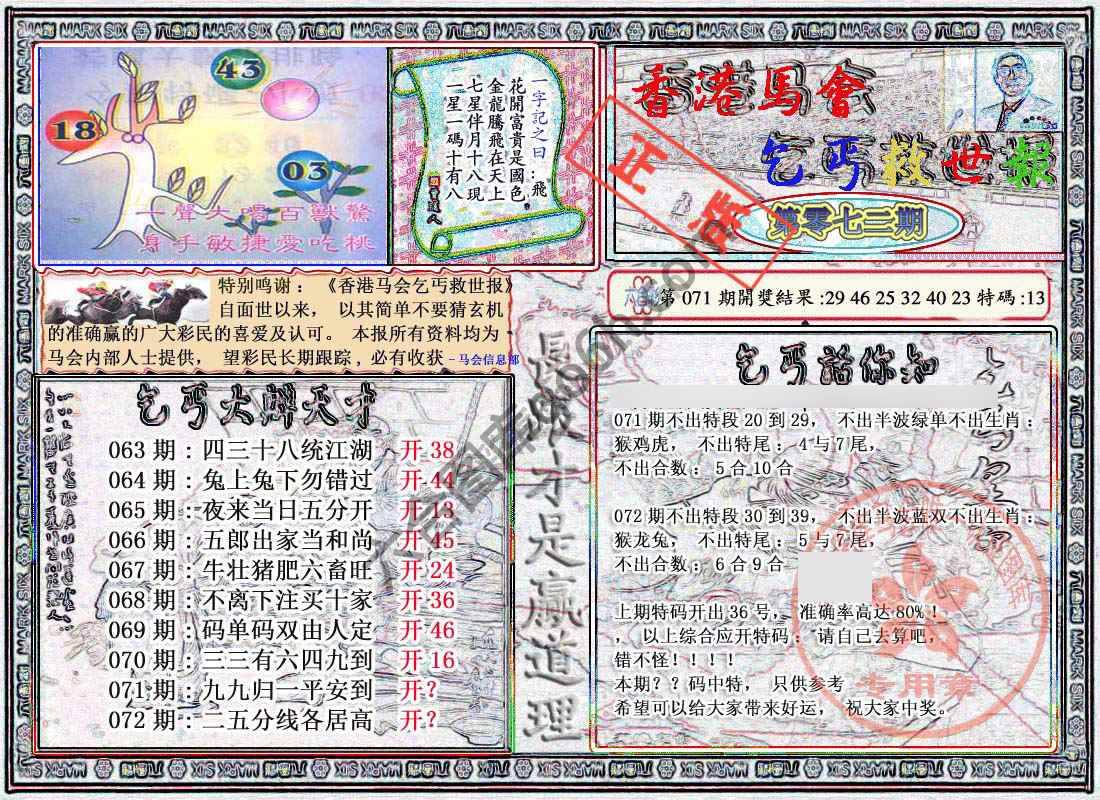 MARK SIX
43
18
03
一聲大喝百獸驚
身手敏捷愛吃桃
一字記之曰：飛
花開富貴是國色
金龍騰飛在天上
七星伴月十八現
一星一碼十有八
香港馬會
乞丐救世報
第零七二期
正
特别鸣谢：《香港马会乞丐救世报》
自面世以来， 以其简单不要猜玄机
的准确赢的广大彩民的喜爱及认可。 本报所有资料均为
马会内部人士提供， 望彩民长期跟踪，必有收获 - 马会信息部
第 071 期開獎結果 :29 46 25 32 40 23 特碼 :13
063 期：四三十八统江湖 开 38
064 期：兔上兔下勿错过 开 44
065 期：夜来当日五分开 开 13
066 期：五郎出家当和尚 开 45
067 期：牛壮猪肥六畜旺 开 24
068 期：不离下注买十家 开 36
069 期：码单码双由人定 开 46
070 期：三三有六四九到 开 16
071 期：九九归一平安到 开？
072 期：二五分线各居高 开？
才是赢道理
乞丐話你知
071 期不出特段 20 到 29， 不出半波绿单不出生肖：
猴鸡虎， 不出特尾：4 与 7 尾，
不出合数：5 合 10 合
072 期不出特段 30 到 39， 不出半波蓝双不出生肖：
猴龙兔， 不出特尾：5 与 7 尾，
不出合数：6 合 9 合
上期特码开出 36 号， 准确率高达 80%！
， 以上综合应开特码： 请自己去算吧，
错不怪！！！！
本期？？码中特， 只供参考
希望可以给大家带来好运， 祝大家中奖。
专用章